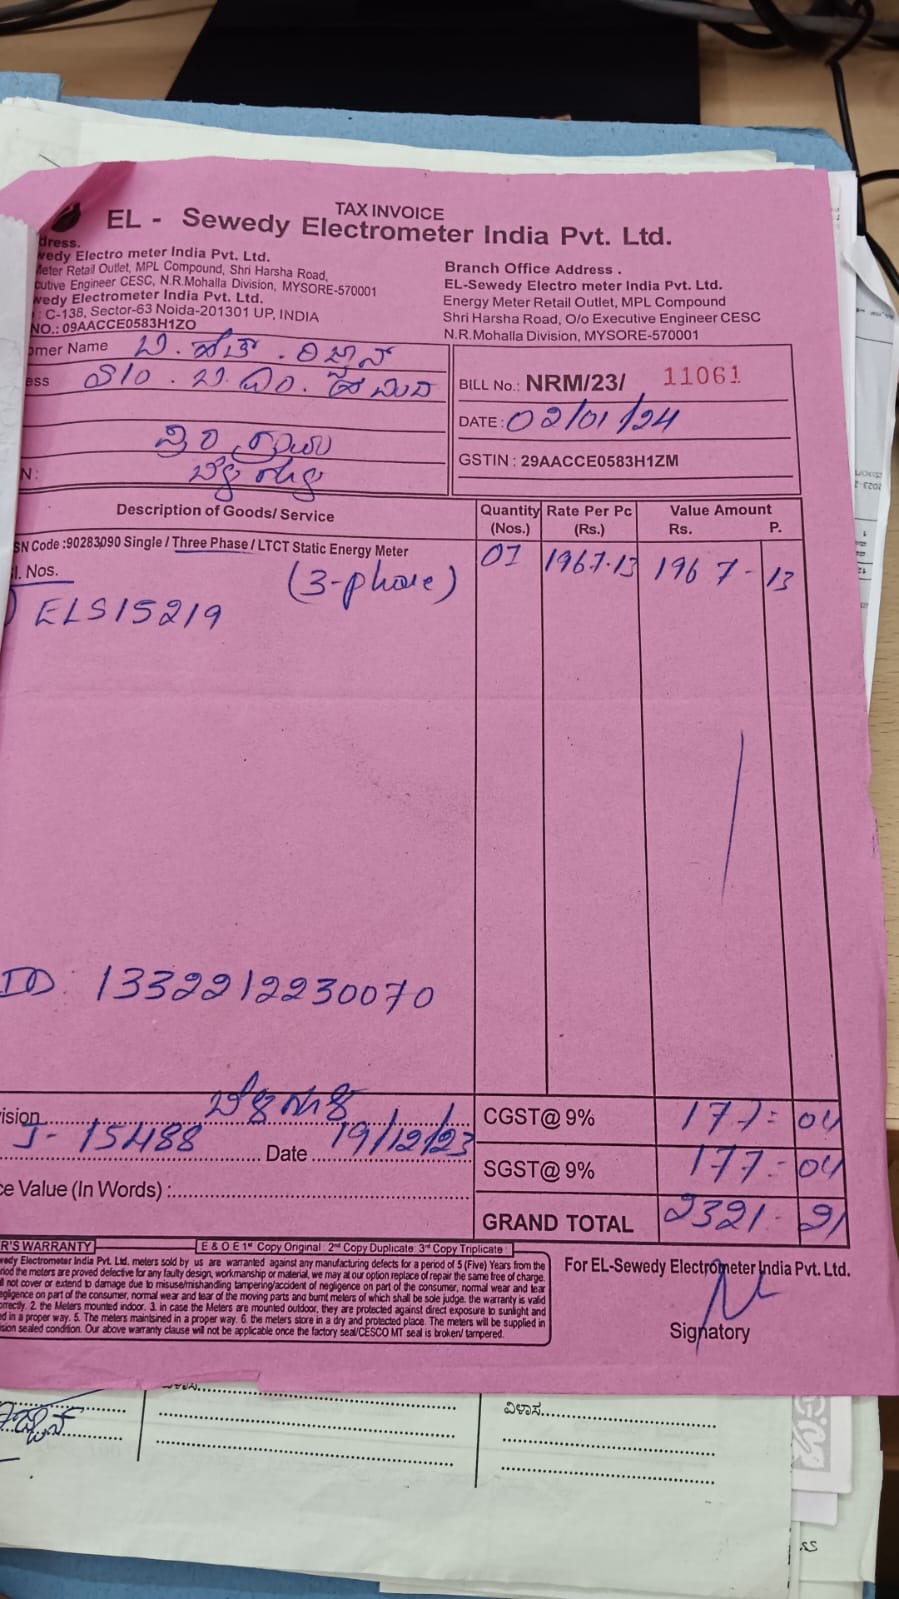 TAX INVOICE
EL - Sewedy Electrometer India Pvt. Ltd.
dress.
wedy Electro meter India Pvt. Ltd.
Meter Retail Outlet, MPL Compound, Shri Harsha Road,
cutive Engineer CESC, N.R.Mohalla Division, MYSORE-570001
wedy Electrometer India Pvt. Ltd.
: C-138, Sector-63 Noida-201301 UP, INDIA
NO.: 09AACCE0583H1ZO
Branch Office Address .
EL-Sewedy Electro meter India Pvt. Ltd.
Energy Meter Retail Outlet, MPL Compound
Shri Harsha Road, O/o Executive Engineer CESC
N.R.Mohalla Division, MYSORE-570001
omer Name
ess S/o
N:
BILL No.: NRM/23/ 11061
DATE : 02/01/24
GSTIN : 29AACCE0583H1ZM
Description of Goods/ Service Quantity (Nos.) Rate Per Pc (Rs.) Value Amount Rs. P.
SN Code :90283090 Single / Three Phase / LTCT Static Energy Meter 01 1967.13 1967 - 13
l. Nos. (3-phase)
) ELS15219
ID: 1332212230070
ision
J- 15488 Date 19/12/23
ce Value (In Words) :
CGST@ 9% 177= 04
SGST@ 9% 177= 04
GRAND TOTAL 2321 - 21
R'S WARRANTY E & O E 1st Copy Original 2nd Copy Duplicate 3rd Copy Triplicate
wedy Electrometer India Pvt. Ltd. meters sold by us are warranted against any manufacturing defects for a period of 5 (Five) Years from the
riod the meters are proved defective for any faulty design, workmanship or material, we may at our option replace of repair the same free of charge.
ll not cover or extend to damage due to misuse/mishandling tampering/accident of negligence on part of the consumer, normal wear and tear
egligence on part of the consumer, normal wear and tear of the moving parts and burnt meters of which shall be sole judge. the warranty is valid
orrectly. 2. the Meters mounted indoor. 3. in case the Meters are mounted outdoor, they are protected against direct exposure to sunlight and
ed in a proper way. 5. The meters maintsined in a proper way. 6. the meters store in a dry and protected place. The meters will be supplied in
ision sealed condition. Our above warranty clause will not be applicable once the factory seal/CESCO MT seal is broken/ tampered.
For EL-Sewedy Electrometer India Pvt. Ltd.
Signatory
ವಿಳಾಸ